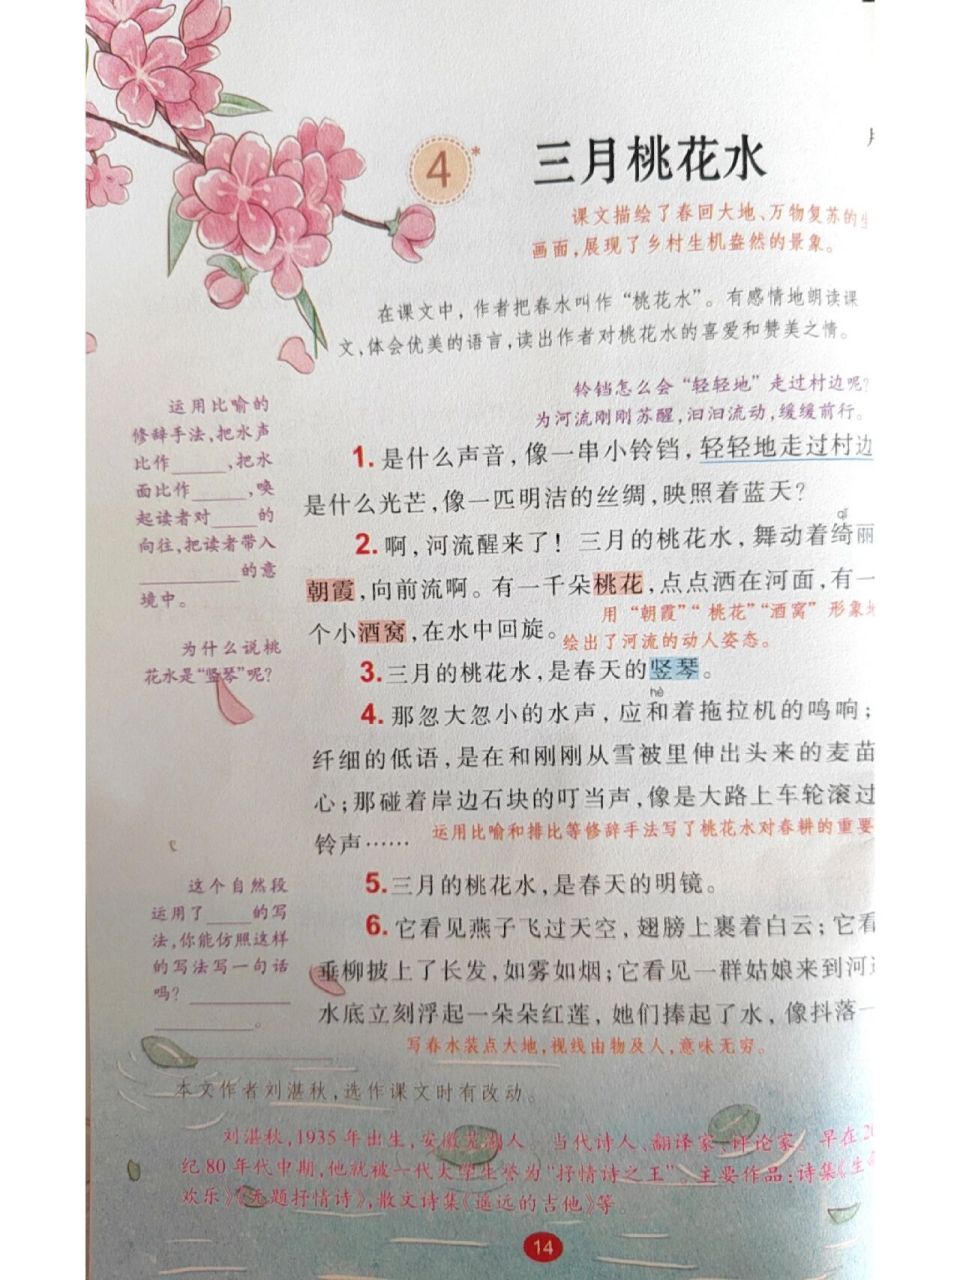 4*
三月桃花水
课文描绘了春回大地、万物复苏的
画面,展现了乡村生机盎然的景象。
在课文中，作者把春水叫作“桃花水”。有感情地朗读课
文,体会优美的语言,读出作者对桃花水的喜爱和赞美之情。
铃铛怎么会“轻轻地”走过村边呢?
为河流刚刚苏醒,汩汩流动,缓缓前行。
1.是什么声音,像一串小铃铛,轻轻地走过村边
是什么光芒,像一匹明洁的丝绸,映照着蓝天?
qǐ
2.啊,河流醒来了! 三月的桃花水,舞动着绮丽
朝霞,向前流啊。有一千朵桃花,点点洒在河面,有一
用“朝霞”“桃花”“酒窝”形象
个小酒窝,在水中回旋。
绘出了河流的动人姿态。
3.三月的桃花水,是春天的竖琴。
hè
4.那忽大忽小的水声,应和着拖拉机的鸣响;
纤细的低语,是在和刚刚从雪被里伸出头来的麦苗
心;那碰着岸边石块的叮当声,像是大路上车轮滚过
铃声……
运用比喻和排比等修辞手法写了桃花水对春耕的重要
5.三月的桃花水,是春天的明镜。
6.它看见燕子飞过天空,翅膀上裹着白云;它看
垂柳披上了长发,如雾如烟;它看见一群姑娘来到河
水底立刻浮起一朵朵红莲,她们捧起了水,像抖落一
写春水装点大地,视线由物及人,意味无穷。
运用比喻的
修辞手法,把水声
比作_____,把水
面比作_____,唤
起读者对____的
向往,把读者带入
_________的意
境中。
为什么说桃
花水是“竖琴”呢?
这个自然段
运用了____的写
法,你能仿照这样
的写法写一句话
吗? _________
_________。
本文作者刘湛秋,选作课文时有改动。
刘湛秋,1935年出生,安徽芜湖人。当代诗人、翻译家、评论家。早在2
纪80年代中期,他就被一代大学生誉为“抒情诗之王”。主要作品:诗集《生命
欢乐》《无题抒情诗》,散文诗集《遥远的吉他》等。
14